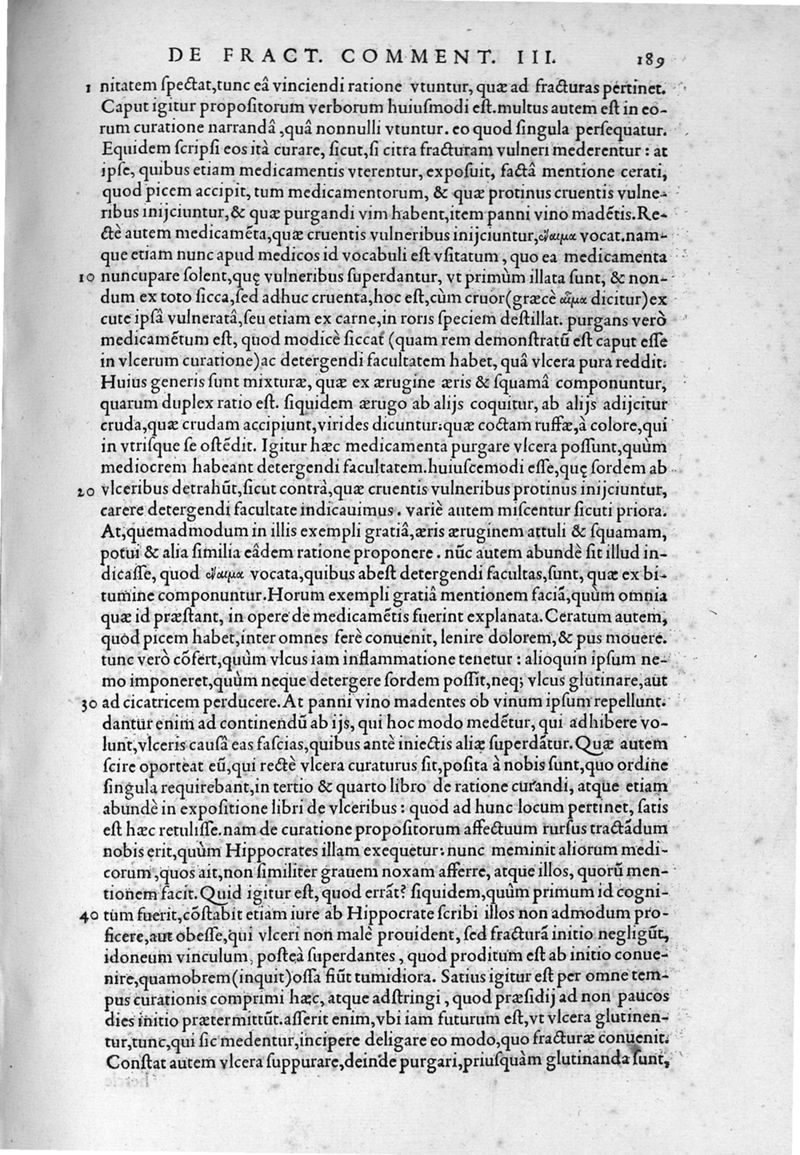 DE FRACT. COMMENT. III. 189
1 nitatem ſpectat,tunc eâ vinciendi ratione vtuntur, quæ ad fracturas pertinet.
Caput igitur propoſitorum verborum huiuſmodi eſt.multus autem eſt in eo-
rum curatione narrandâ ,quâ nonnulli vtuntur. eo quod ſingula perſequatur.
Equidem ſcripſi eos ità curare, ſicut,ſi citra fracturam vulneri mederentur : at
ipſe, quibus etiam medicamentis vterentur, expoſuit, factâ mentione cerati,
quod picem accipit, tum medicamentorum, & quæ protinus cruentis vulne-
ribus inijciuntur,& quæ purgandi vim habent,item panni vino madẽtis.Re-
ctè autem medicamẽta,quæ cruentis vulneribus inijciuntur,ἔναιμα vocat.nam-
que etiam nunc apud medicos id vocabuli eſt vſitatum , quo ea medicamenta
10 nuncupare ſolent,quę vulneribus ſuperdantur, vt primùm illata ſunt, & non-
dum ex toto ſicca,ſed adhuc cruenta,hoc eſt,cùm cruor(græcè αἷμα dicitur)ex
cute ipſâ vulneratâ,ſeu etiam ex carne,in roris ſpeciem deſtillat. purgans verò
medicamẽtum eſt, quod modicè ſiccat (quam rem demonſtratũ eſt caput eſſe
in vlcerum curatione)ac detergendi facultatem habet, quâ vlcera pura reddit.
Huius generis ſunt mixturæ, quæ ex ærugine æris & ſquamâ componuntur,
quarum duplex ratio eſt. ſiquidem ærugo ab alijs coquitur, ab alijs adijcitur
cruda,quæ crudam accipiunt,virides dicuntur:quæ coctam ruffæ,à colore,qui
in vtriſque ſe oſtẽdit. Igitur hæc medicamenta purgare vlcera poſſunt,quùm
mediocrem habeant detergendi facultatem.huiuſcemodi eſſe,quę ſordem ab
20 vlceribus detrahũt,ſicut contrà,quæ cruentis vulneribus protinus inijciuntur,
carere detergendi facultate indicauimus . variè autem miſcentur ſicuti priora.
At,quemadmodum in illis exempli gratiâ,æris æruginem attuli & ſquamam,
potui & alia ſimilia eâdem ratione proponere . nũc autem abundè ſit illud in-
dicaſſe, quod ἔναιμα vocata,quibus abeſt detergendi facultas,ſunt, quæ ex bi-
tumine componuntur.Horum exempli gratiâ mentionem faciã,quùm omnia
quæ id præſtant, in opere de medicamẽtis fuerint explanata.Ceratum autem,
quod picem habet,inter omnes ferè conuenit, lenire dolorem,& pus mouere.
tunc verò cõfert,quùm vlcus iam inflammatione tenetur : alioquin ipſum ne-
mo imponeret,quùm neque detergere ſordem poſſit,neq; vlcus glutinare,aut
30 ad cicatricem perducere.At panni vino madentes ob vinum ipſum repellunt.
dantur enim ad continendũ ab ijs, qui hoc modo medẽtur, qui adhibere vo-
lunt,vlceris cauſâ eas faſcias,quibus antè iniectis aliæ ſuperdãtur.Quæ autem
ſcire oporteat eũ,qui rectè vlcera curaturus ſit,poſita à nobis ſunt,quo ordine
ſingula requirebant,in tertio & quarto libro de ratione curandi, atque etiam
abundè in expoſitione libri de vlceribus : quod ad hunc locum pertinet, ſatis
eſt hæc retuliſſe.nam de curatione propoſitorum affectuum rurſus tractãdum
nobis erit,quùm Hippocrates illam exequetur:nunc meminit aliorum medi-
corum ,quos ait,non ſimiliter grauem noxam afferre, atque illos, quorũ men-
tionem facit. Quid igitur eſt, quod errãt? ſiquidem,quùm primum id cogni-
40 tum fuerit,cõſtabit etiam iure ab Hippocrate ſcribi illos non admodum pro-
ficere,aut obeſſe,qui vlceri non malè prouident, ſed fracturã initio negligũt,
idoneum vinculum, poſteà ſuperdantes , quod proditum eſt ab initio conue-
nire,quamobrem(inquit)oſſa fiũt tumidiora. Satius igitur eſt per omne tem-
pus curationis comprimi hæc, atque adſtringi , quod præſidij ad non paucos
dies initio prætermittũt.aſſerit enim,vbi iam futurum eſt,vt vlcera glutinen-
tur,tunc,qui ſic medentur,incipere deligare eo modo,quo fracturæ conuenit.
Conſtat autem vlcera ſuppurare,deinde purgari,priuſquàm glutinanda ſunt,